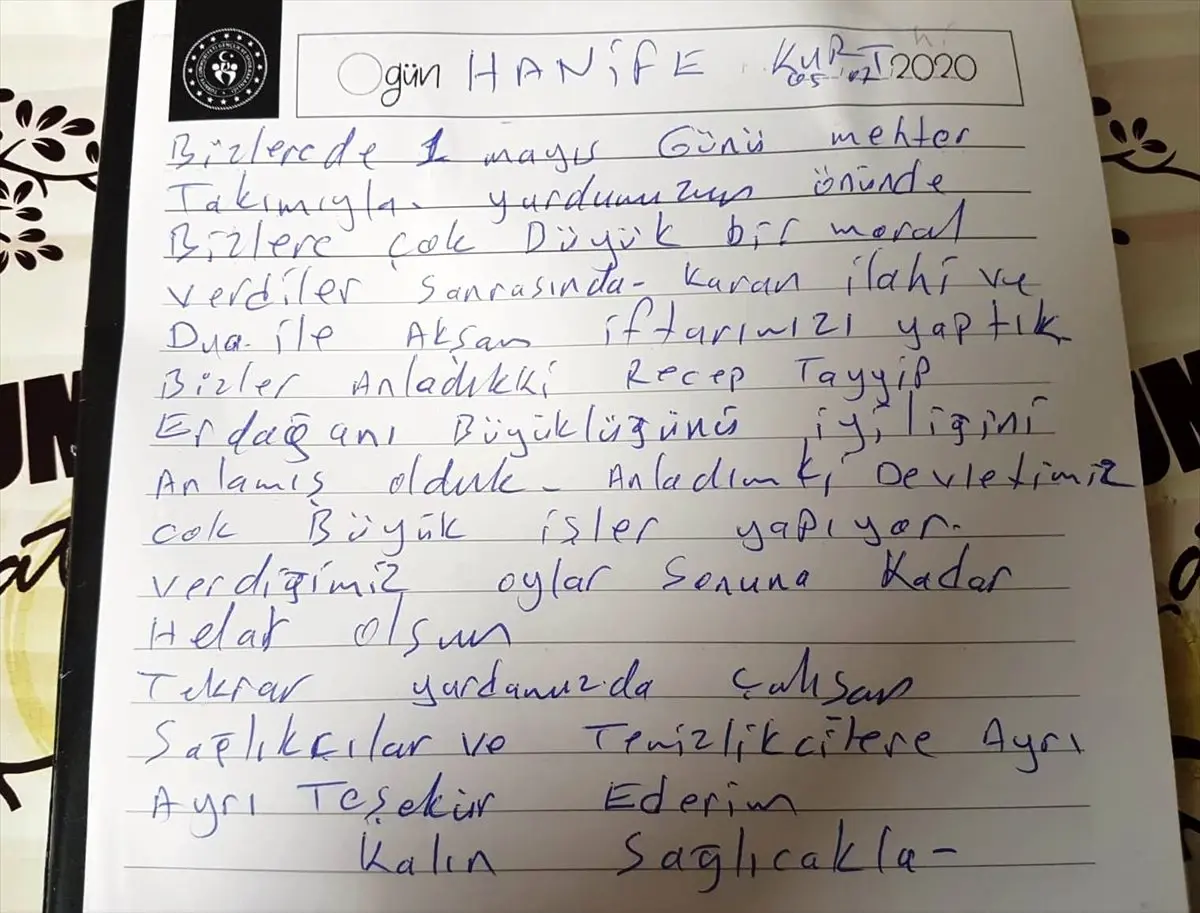 O gün HANİFE KURT 05 07 2020
Bizlerede 1 mayıs Günü mehter
Takımıyla. yurdumuzun önünde
Bizlere çok Düyük bir moral
verdiler Sonrasında- Kuran ilahi ve
Dua. ile Akşam iftarımızı yaptık
Bizler Anladıkki Recep Tayyip
Erdağanı Büyüklüğünü iyiliğini
Anlamış olduk- Anladımki Devletimiz
çok Büyük işler yapıyor.
verdiğimiz oylar Sonuna Kadar
Helal Olsun
Tekrar yurdumuzda çalısan
Sağlıkçılar ve Temizlikcilere Ayrı
Ayrı Teşekür Ederim
Kalın Sağlıcakla-